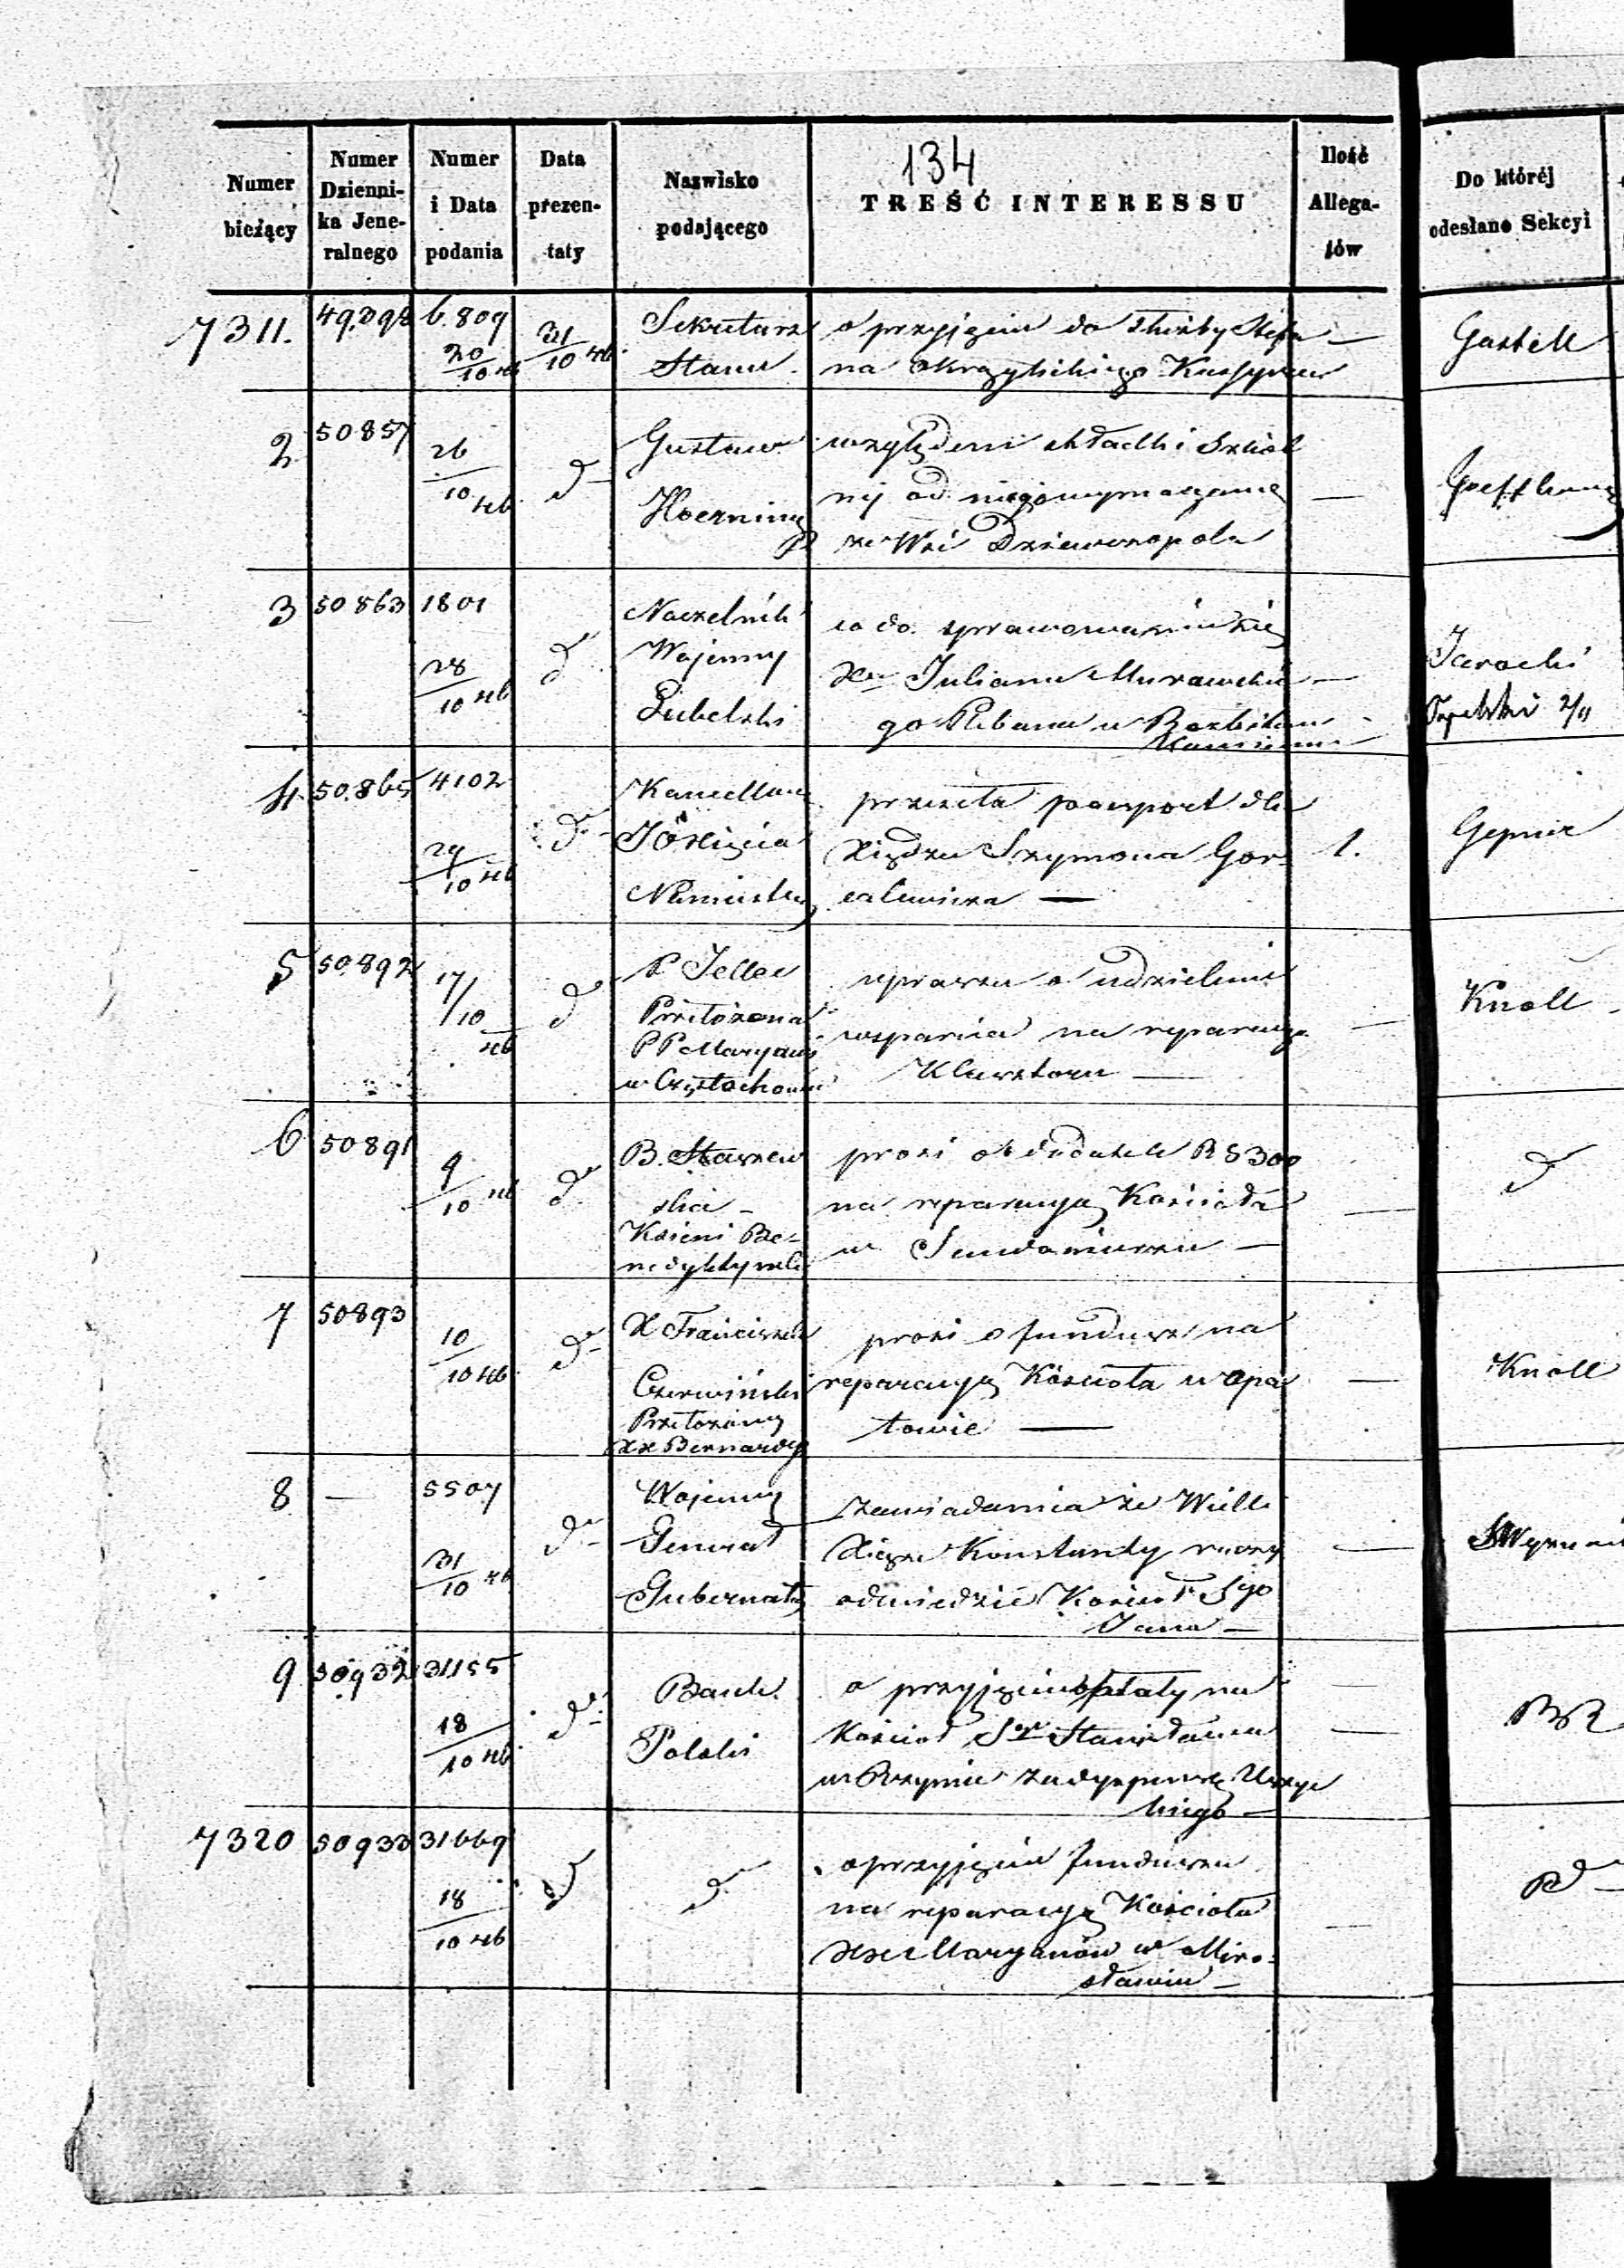 134
Numer bieżący
Numer Dzienni-
ka Jene-
ralnego
Numer i Data podania
Data prezen-
taty
Nazwisko podającego
TREŚĆ INTERESSU
Ilość Allega-
tów
Do któréj odesłano Sekcyi
7311.
6.809
20/10 4b
31/10 4b
Sekretarz
Stanu
o przyjęciu do służby Stefa
na
Gastell
2
50857
26/10 4b
d
Gustaw
względem składki Szkol
nej od niego wymaganej
ze Wsi
—
3
50863
1801
28/10 4b
d
Naczelnik
Wojenny
Lubelski
co do sprawowania się
Xa Juliana Murawskie
go Plebana w
—
Jarocki
2/11
4.
50.865
4102
29/10 4b
d
Kancellarya
Xięcia
Namiestn
przesyła passport dla
Xiędza Szymona Gor
—
1.
Gepner
5
50892
17/10 4b
d
P
Przełożona
PP Maryawi
w Częstochowie
uprasza o udzielenie
wsparcia na reparacyę
Klasztoru —
—
Knoll
6
50891
9/10 4b
d
B. Staszew
ska –
Kseni Be-
nedyktynek
prosi o dodatek RS 300
na reparacyę Kościoła
w Sandomierzu —
—
d
7
50893
10/10 4b
d
X Franciszek
Czerwiński
Przełożony
XX Bernardy
prosi o fundusz na
reparacyę Kościoła w Opa
towie —
—
Knoll
8
—
5507
31/10 4b
d
Wojenny
Generał
Gubernator
Zawiadamia że Wielki
Xiąże Konstanty raczy
odwiedzić Kościoł Sgo
Jana —
—
9
50932
31155
18/10 4b
d
Bank
Polski
o przyjęciu opłaty na
Kościoł Sgo Stanisława
w Rzymie za dyspensę
—
7320
50933
31669
18/10 4b
d
d
o przyjęciu funduszu
na reparacyę Kościoła
XX Maryanów w Miro-
sławiu —
—
d